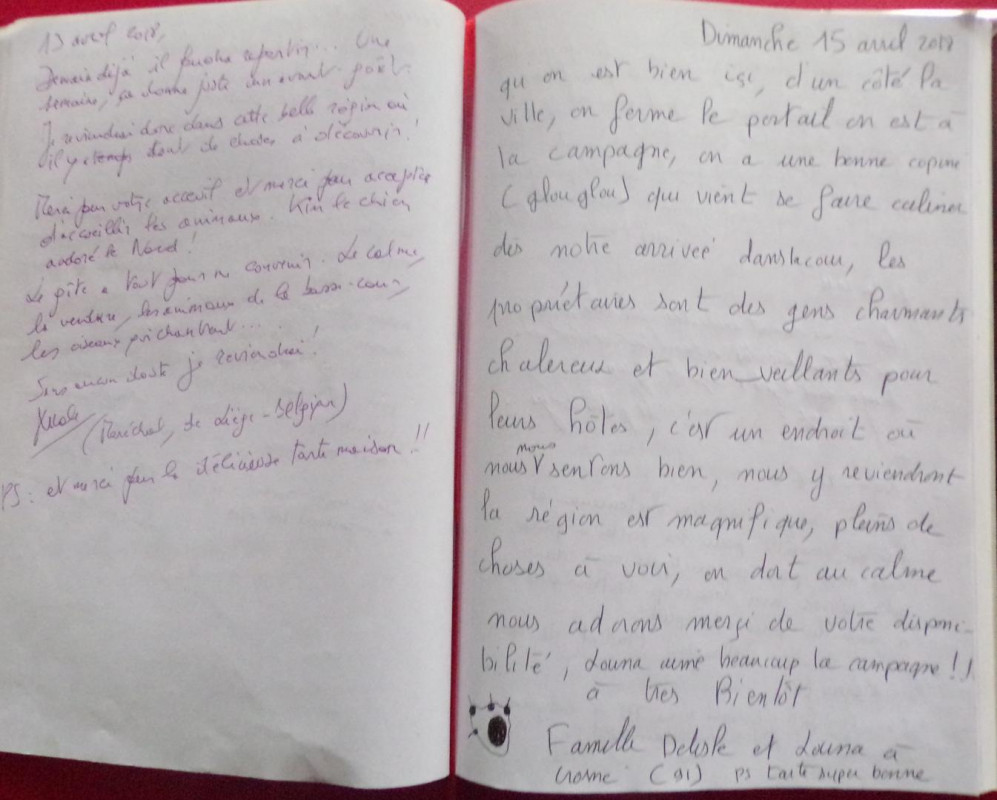 13 avril 2018,
Demain déjà il faudra repartir... Une
semaine, ça donne juste un avant-goût.
Je reviendrai donc dans cette belle région où
il y a temps tant de choses à découvrir!
Merci pour votre accueil et merci pour accepter
d'accueillir les animaux. Kim le chien
adoré le Nord!
Le gîte a tout pour me convenir. Le calme,
la verdure, les animaux de la basse-cour,
les oiseaux qui chantent...
Sans aucun doute je reviendrai!
(Maréchal, de Liège-Belgique)
PS: et merci pour la délicieuse tarte maison!!
Dimanche 15 avril 2018
qu on est bien içi, d'un côté la
ville, on ferme le portail on est à
la campagne, on a une bonne copine
(glouglou) qui vient se faire caliner
dés notre arriveé dans la cour, les
propriétaires sont des gens charmants
chalereux et bien_veillants pour
leurs hôtes, c'est un endroit où
nous nous sentons bien, nous y reviendront
la région est magnifique, pleins de
choses à voir, on dort au calme
nous adorons merçi de votre disponi-
bilité, Louna aime beaucoup la campagne!!
à très Bientôt
Famille Delisle et Louna à
crosne (91) ps tarte super bonne